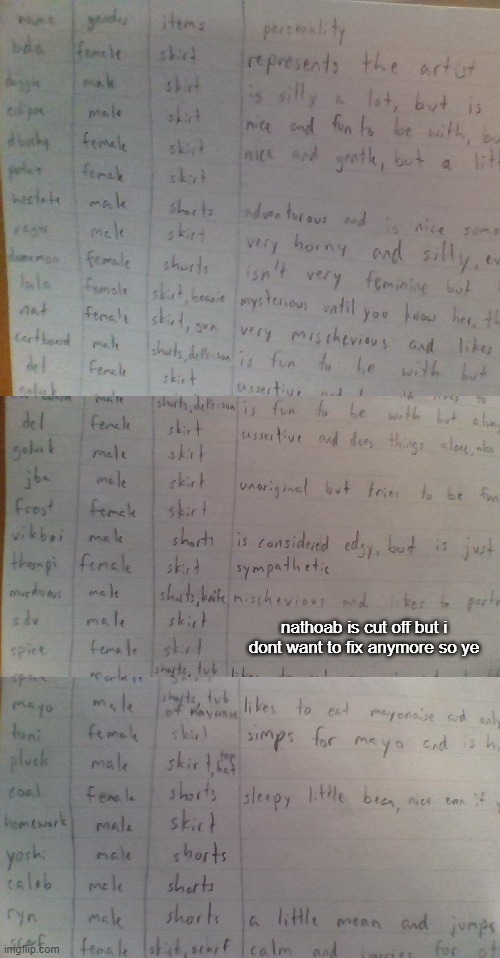 name gender items personality
bda female skirt represents the artist
doggie male skirt is silly a lot, but is
eclipse male skirt nice and fun to be with, bu
female skirt nice and gentle, but a litt
female skirt
male shorts adventurous and is nice some
male skirt very horny and silly, ev
female shorts isn't very feminine but
lala female skirt, beanie mysterious until you know her, th
nat female skirt, gun very mischevious and likes
cartboard male shorts, is fun to be with but
del female skirt assertive
male shorts, is fun to be with but alway
del female skirt assertive and does things alone, also
male skirt
jba male skirt unoriginal but tries to be fun
Frost female skirt
vikboi male shorts is considered edgy, but is just
thempi female skirt sympathetic
murderous male shorts, knife mischevious and likes to
sdu male skirt
spire female skirt
nathoab is cut off but i
dont want to fix anymore so ye
shorts, tub
mayo male shorts, tub of mayonaise likes to eat mayonaise and only
toni female skirt simps for mayo and is h
pluck male skirt, top hat
coal female shorts sleepy little bean, nice even if
homework male skirt
yoshi male shorts
caleb male shorts
ryn male shorts a little mean and jumps
scarf female skirt, scarf calm and worries for ot
imgflip.com